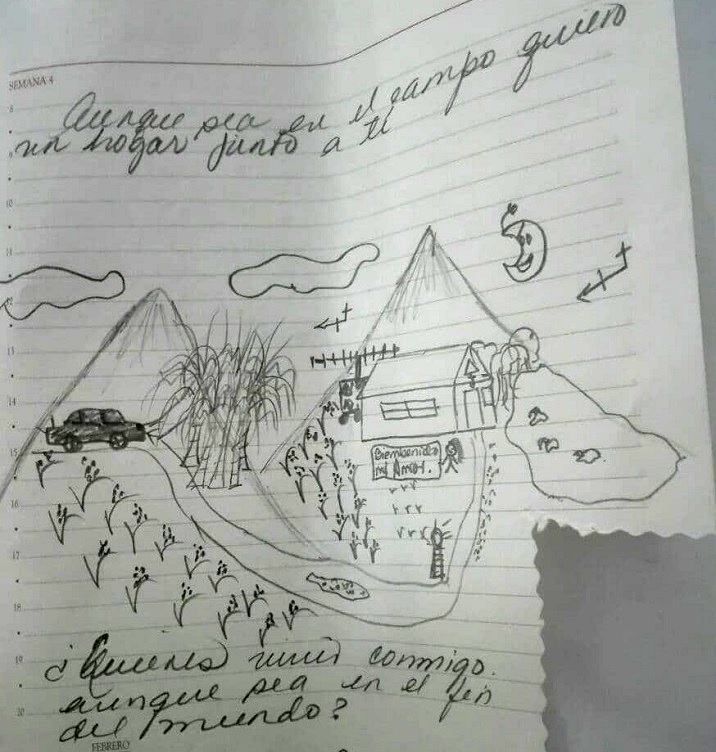 SEMANA 4
8
9
10
11
12
13
14
15
16
17
18
19
20
Aunque sea en el campo quiero
un hogar junto a ti
Bienbenido
mi Amor.
¿Quieres vivir conmigo.
aunque sea en el fin
del mundo?
FEBRERO